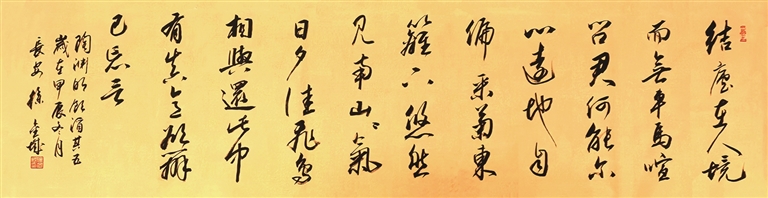 结廬在人境
而無車馬喧
问君何能尔
心遠地自
偏采菊東
籬下悠然
见南山〻氣
日夕佳飛鳥
相與還此中
有真意欲辩
已忘言
陶渊明飲酒其五
歲在甲辰冬月
長安